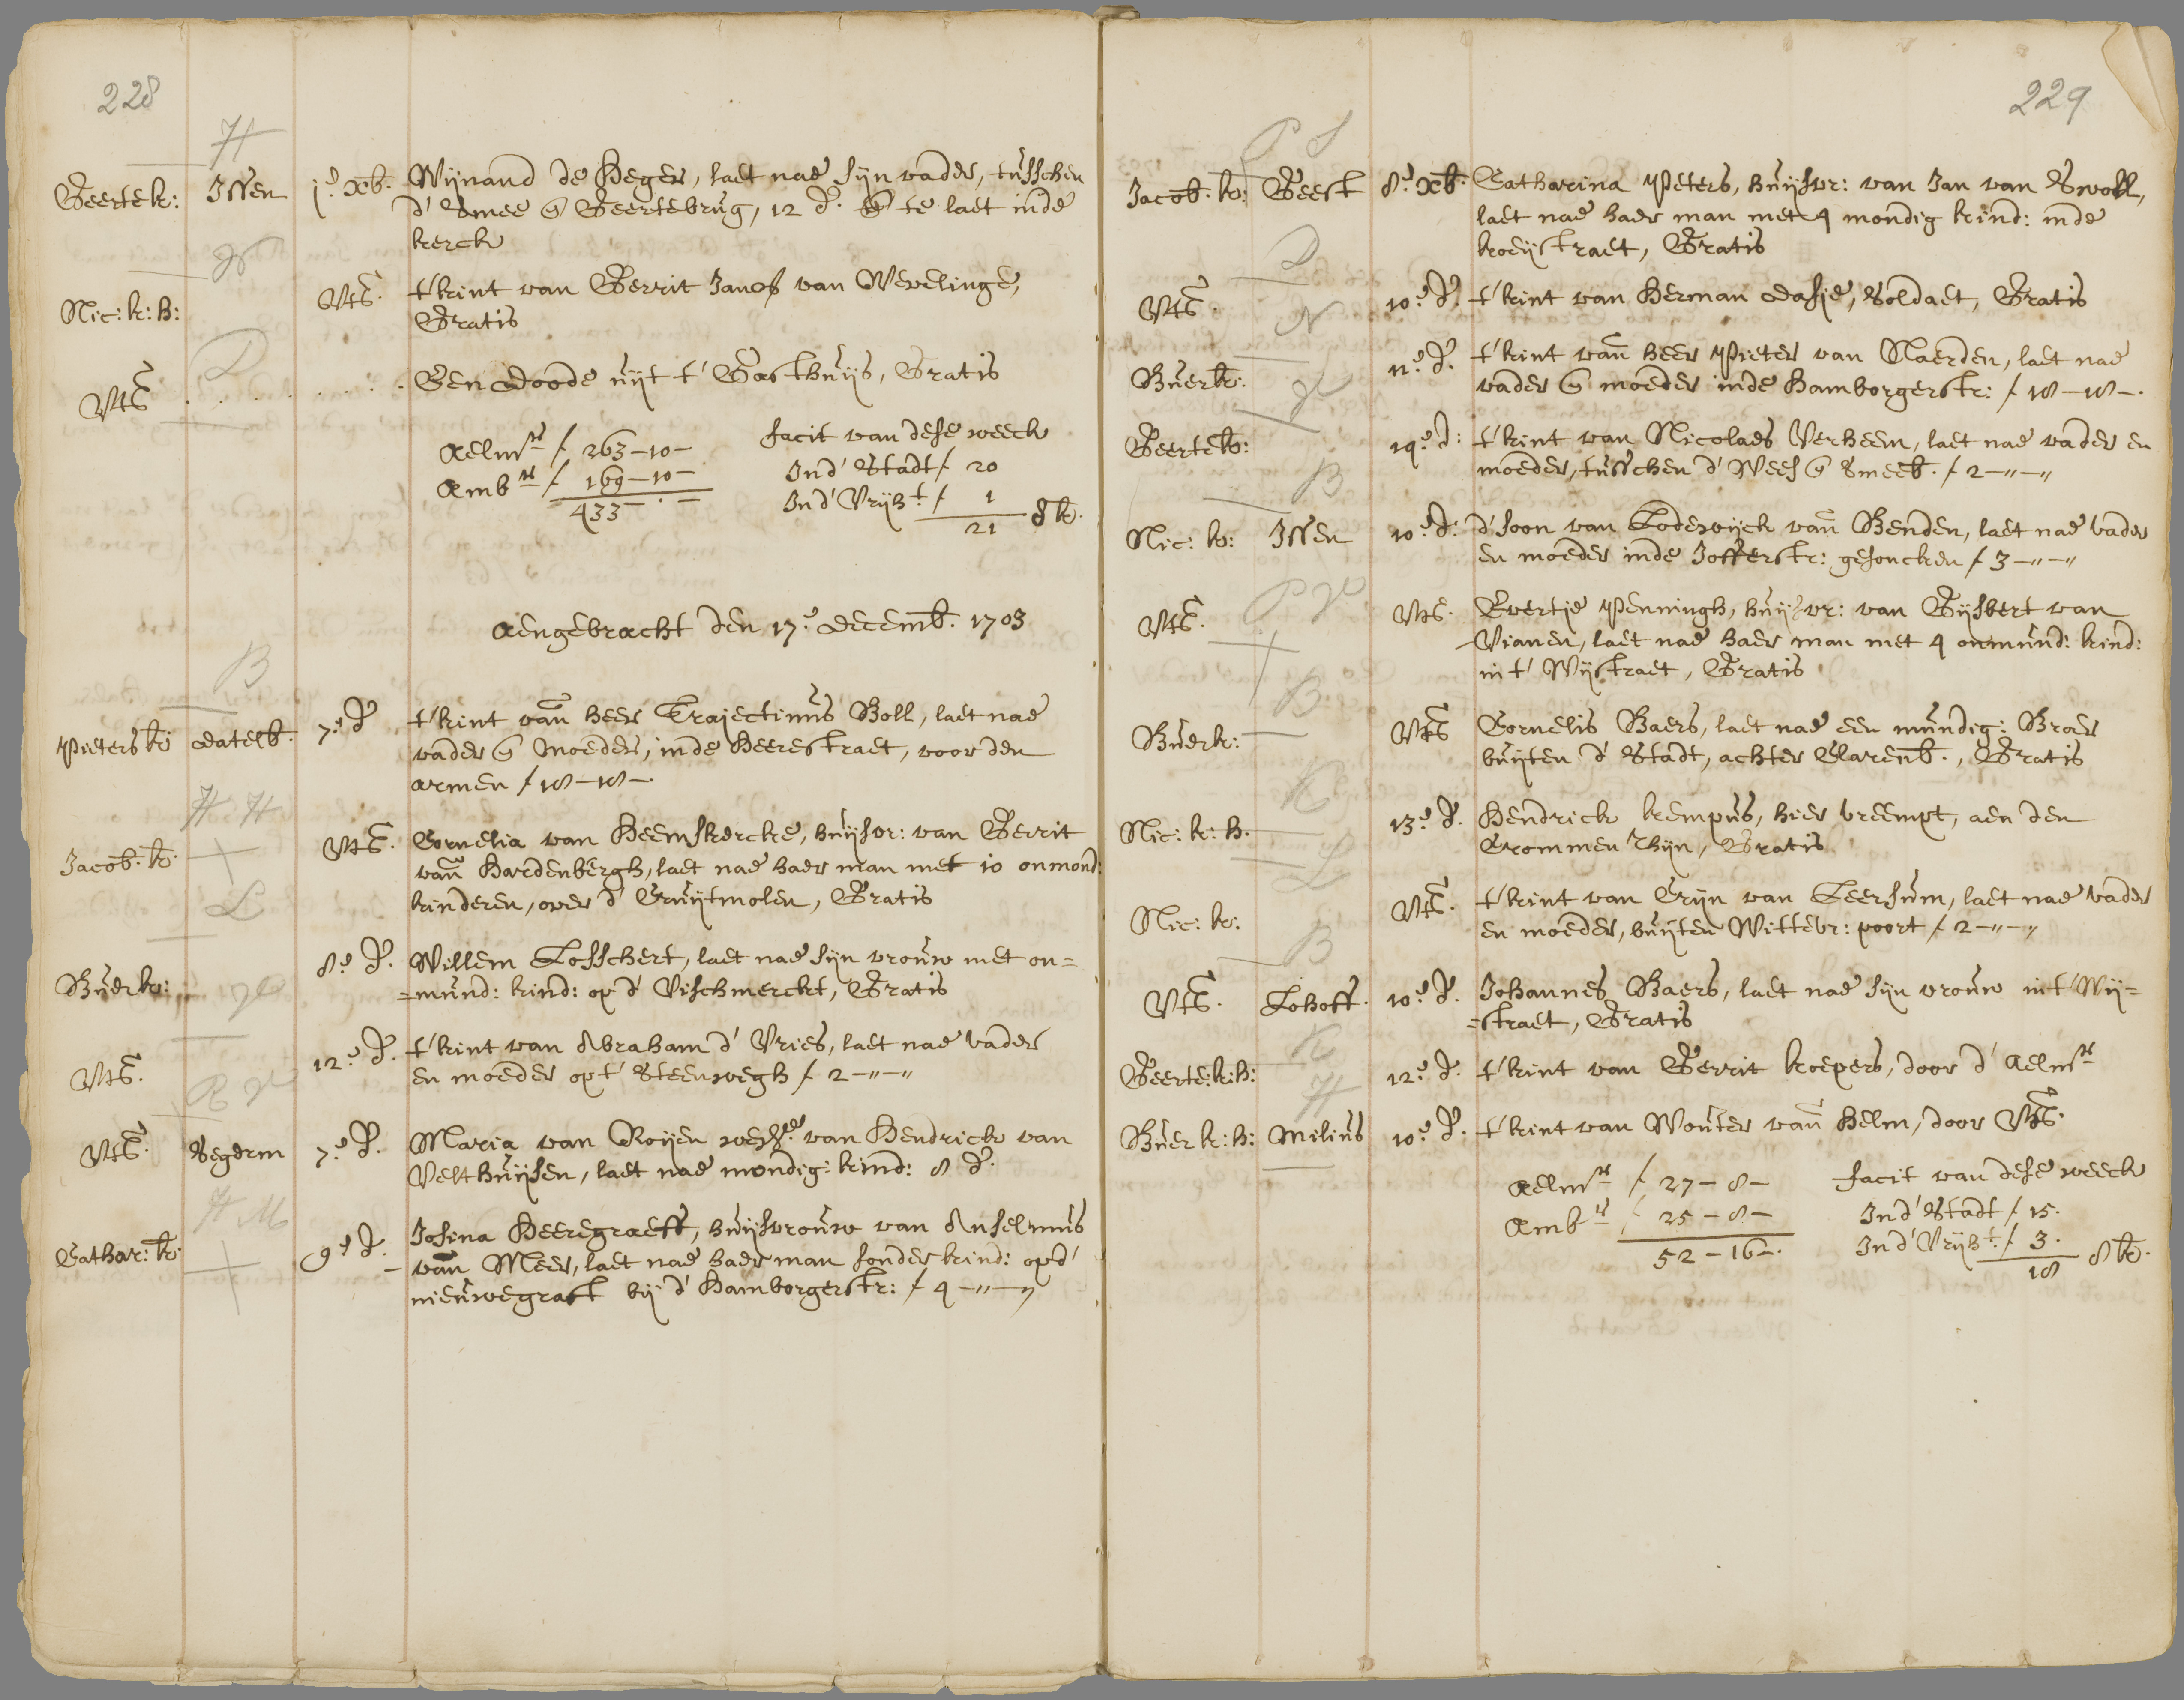 228
H
Geertek: Issen j.e xb. Wijnand de Heger, laet nae sijn vader, tusschen
d' Smee en Geertebrug, 12 d. te laet inde
kerck
Nic: k: h: Uts. t' kint van Gerrit Jans van Wevelinge,
Gratis
D
Uts . . . . . . . Een Doode uijt t' Gasthuijs, Gratis
Aelmrs ƒ 263-10- facit van dese weeck
Ambrs ƒ 169-10- Ind' Stadt ƒ 20
433 - . - Ind' Vrijht ƒ 1
21 8 k.
Aengebracht den 17.e decemb. 1703
B
Pieters k: Datelb. 7.e d. t' kint van heer Trajectinus Boll, laet nae
vader en moeder, inde Heerestraet, voor den
armen ƒ 18-18-.
H H
Jacob. k. Uts. Cornelia van Heemskercke, huijsvr: van Gerrit
van Hardenbergh, laet nae haer man met 10 onmond:
kinderen, over d' Cruijtmolen, Gratis
L
Buerk: 8.e d. Willem Losschert, laet nae sijn vrouw met on=
=mund: kind: op d' Vischmerckt, Gratis
V
Uts. 12.e d. t' kint van Abraham d' Vries, laet nae vader
en moeder op t' Steenwegh ƒ 2-"-"
R V
Uts. Segerm 7.e d. Maria van Roijen wede. van Hendrick van
Velthuijsen, laet nae mondig: kind: 8 d.
H M
Cathar: k. 9.e d. Josina Heeregraeft, huijsvrouw van Anselmus
van Meer, laet nae haer man sonder kind: op d'
nieuwegraft bij d' Hamborgerstr: ƒ 4-"-"
229
P S
Jacob. k: Geest 8.e xb. Catharina Pieters, huijsvr: van Jan van Swoll,
laet nae haer man met 4 mondig kind: inde
kroeijstraet, Gratis
D
Uts. 10.e d. t' kint van Herman Dasje, Soldaet, Gratis
N
Buerk. 11.e d. t' kint van heer Pieter van Naerden, laet nae
vader en moeder inde Hamborgerstr: ƒ 18-18-.
V
Geertek: 19.e d: t' kint van Nicolaes Verheem, laet nae vader en
moeder, tusschen d' Wees en Smeeb. ƒ 2-"-"
B
Nic: k: Issen 10.e d: d' soon van Lodewijck van Benden, laet nae vader
en moeder inde Jofferstr: gesoncken ƒ 3-"-"
P V
Uts. Uts. Evertje Penningh, huijsvr: van Gijsbert van
Vianen, laet nae haer man met 4 onmund: kind:
in t' Wijstraet, Gratis
B
Buerk: Uts Cornelis Baers, laet nae een mundig: Broer
buijten d' Stadt, achter Clarenb., Gratis
K
Nic: k: h. 13.e d. Hendrick kempus, hier vreempt, aen den
Crommen Rhijn, Gratis
L
Nic: k: Uts. t' kint van Crijn van Leersum, laet nae vader
en moeder, buijten Wittevr: poort ƒ 2-"-"
B
Uts. Lohoff. 10.e d. Johannes Baers, laet nae sijn vrouw in t' Wij=
=straet, Gratis
K
Geerte: k: h: 12.e d. t' kint van Gerrit kroepers, door d' Aelmrs
H
Buer k: h: Milius 10.e d. t' kint van Wouter van Helm, door Uts.
Aelmrs ƒ 27-8- facit van dese weeck
Ambrs ƒ 25-8- Ind' Stadt ƒ 15.
52-16-. Ind' Vrijht. ƒ 3.
18 8 k.